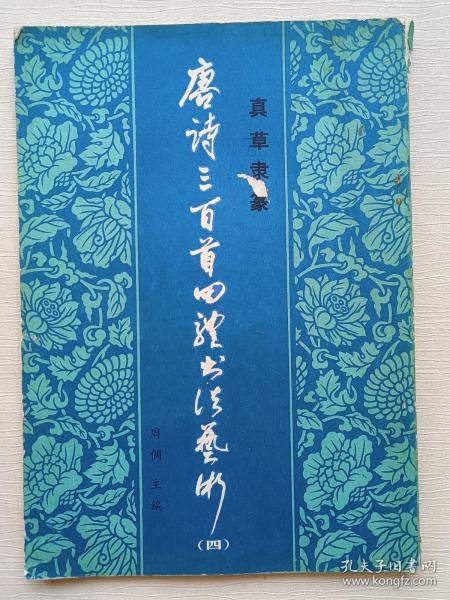 真草隶篆
唐诗三百首四體书法藝術
(四)
周倜 主编
孔夫子旧书网
www.kongfz.com